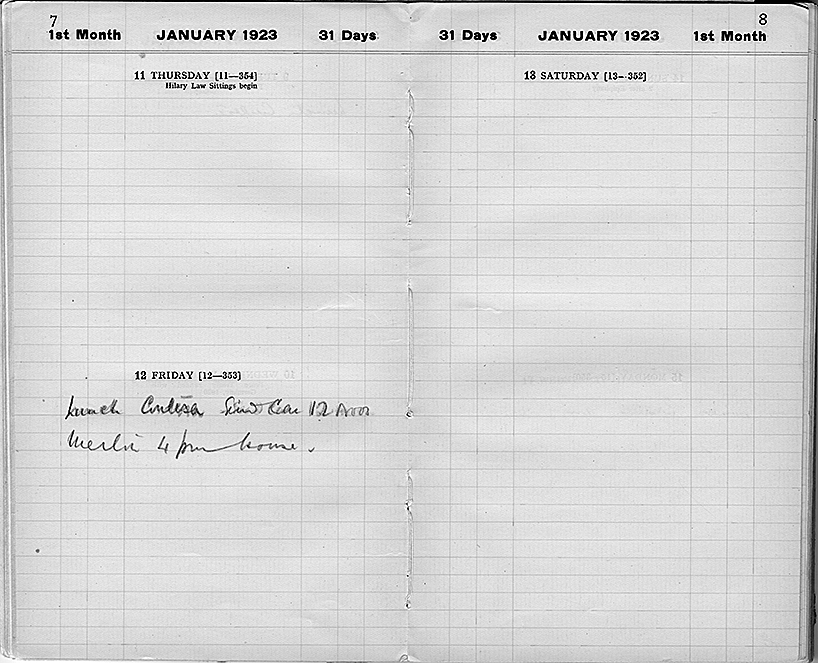 7
1st Month JANUARY 1923 31 Days
11 THURSDAY [11—354]
Hilary Law Sittings begin
12 FRIDAY [12—353]
Lunch Send Car 12 noon
Merlin 4 pm house.
8
31 Days JANUARY 1923 1st Month
13 SATURDAY [13—352]